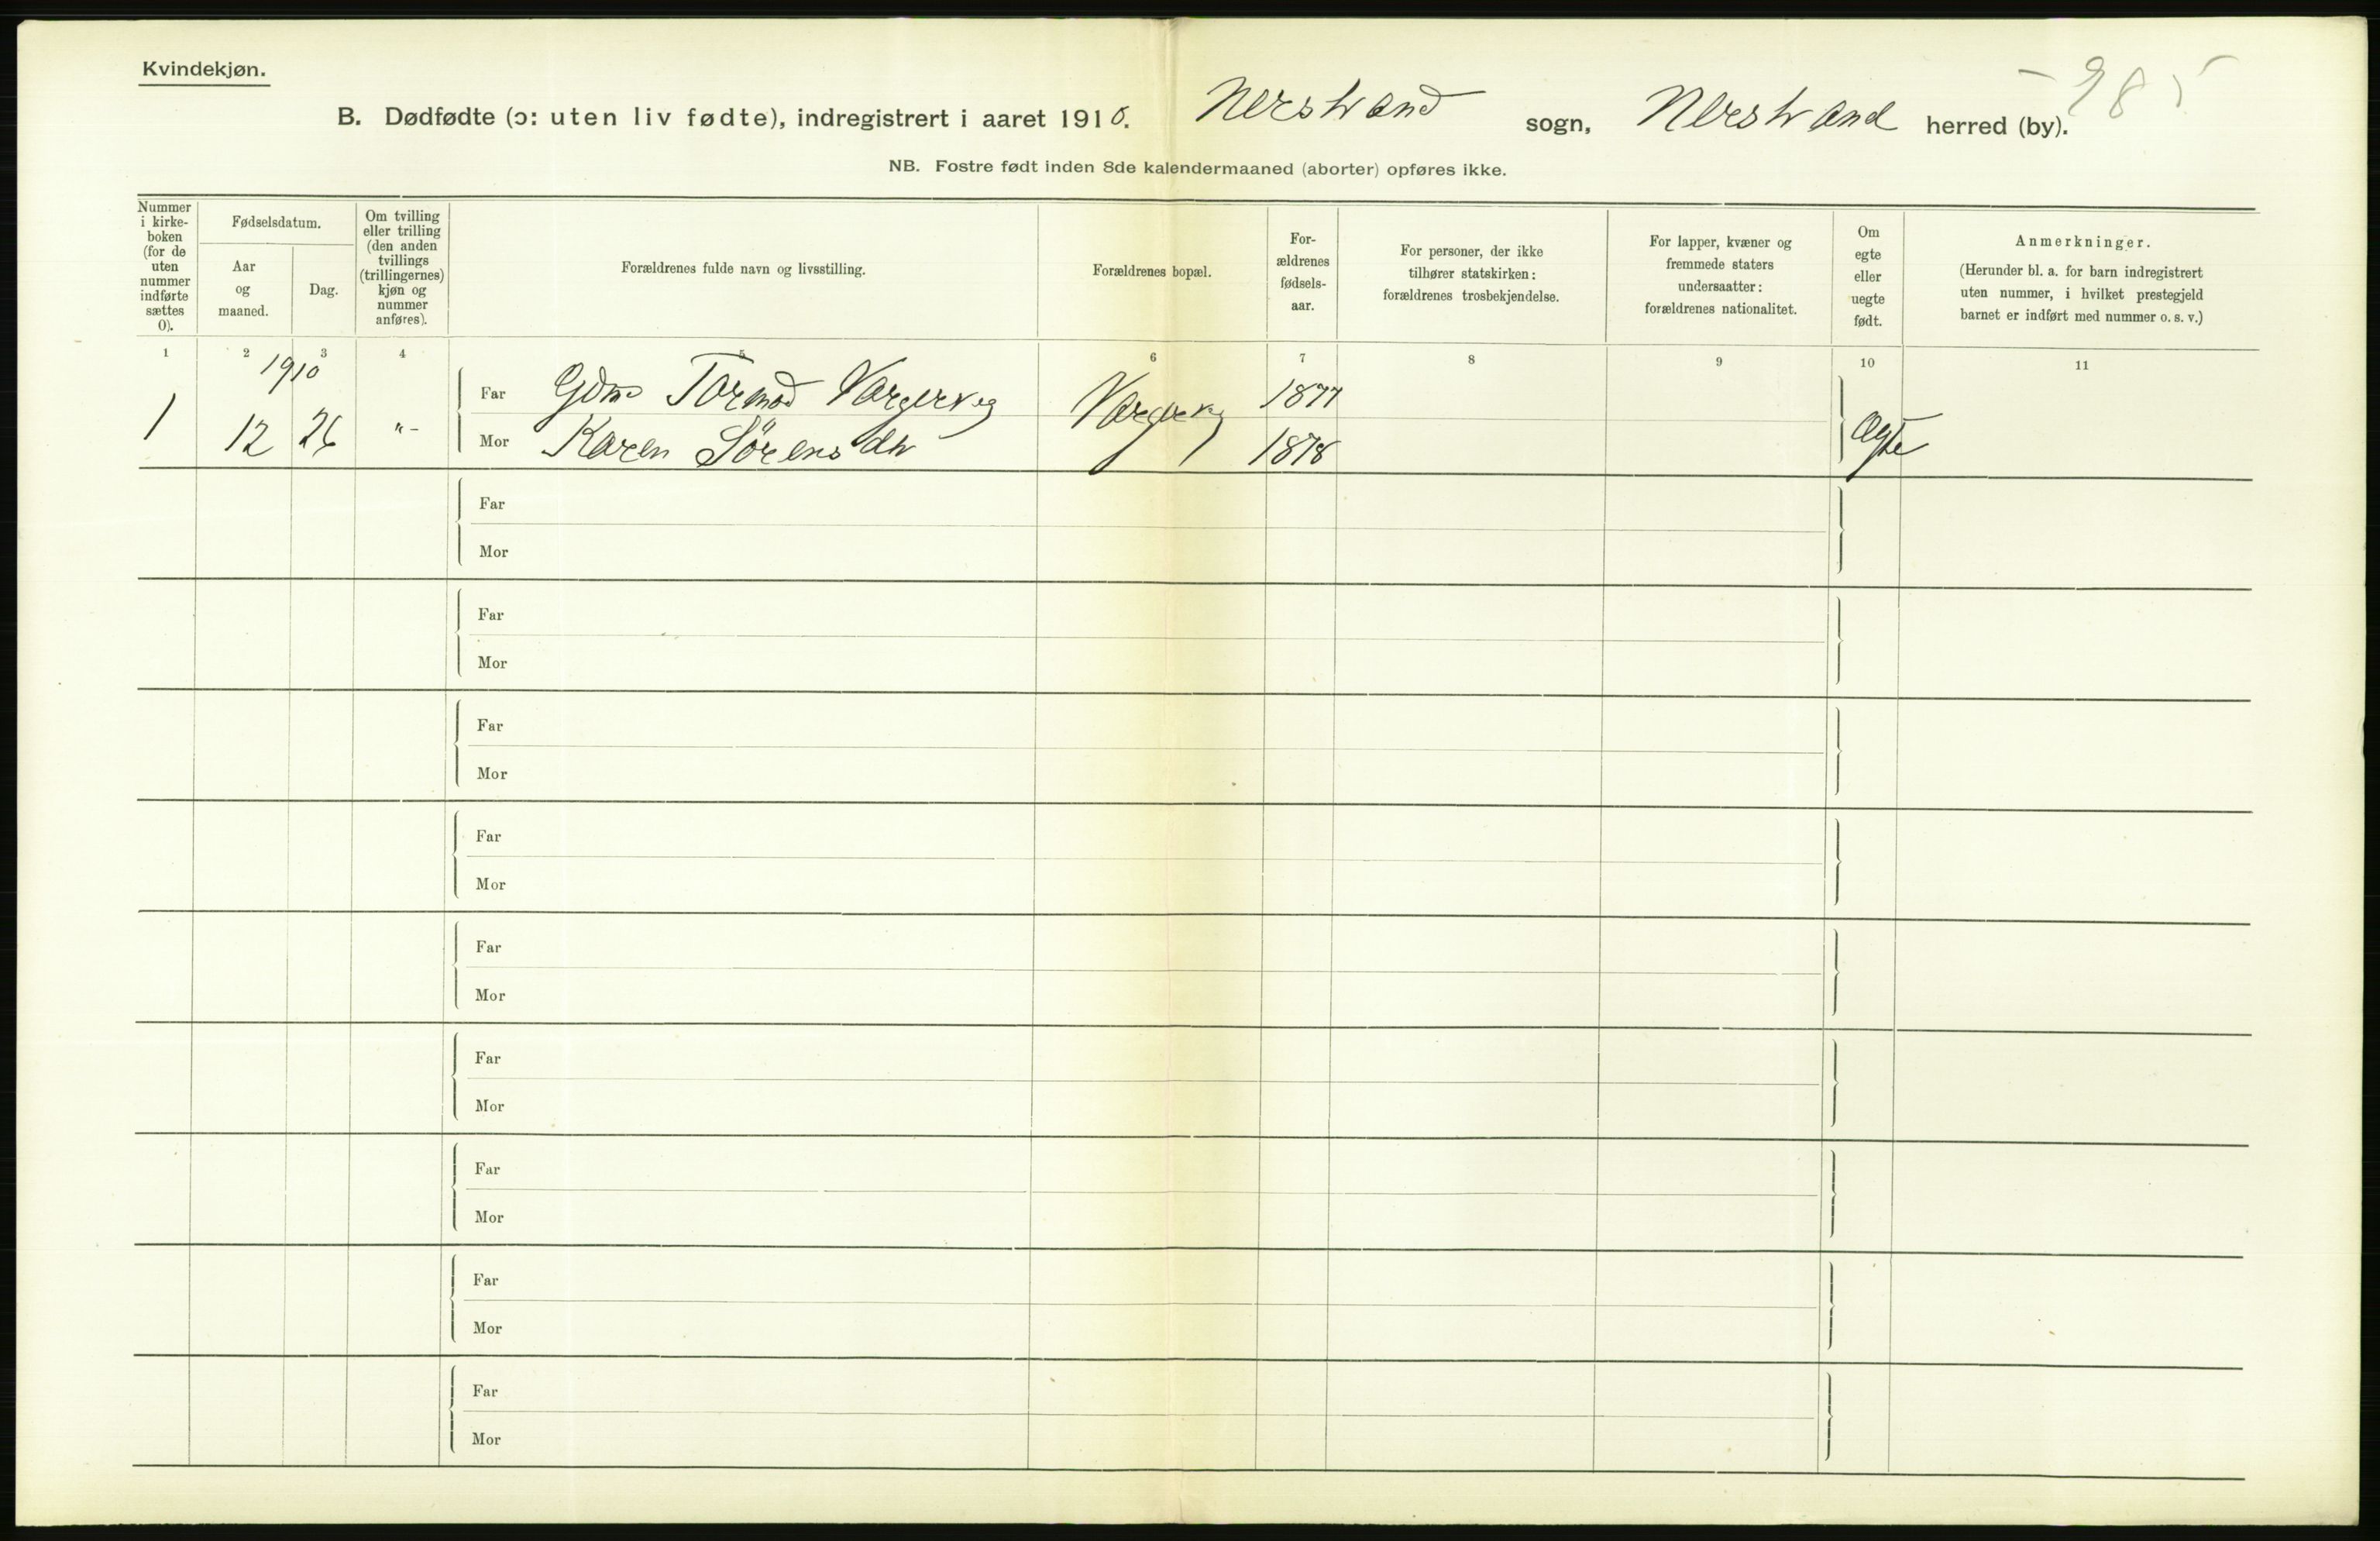 Kvindekjøn.
B. Dødfødte (ɔ: uten liv fødte), indregistrert i aaret 1910. Nerstrand sogn, Nerstrand herred (by).
NB. Fostre født inden 8de kalendermaaned (aborter) opføres ikke.
Nummer
i kirke-
boken
(for de
uten
nummer
indførte
sættes
0).
Fødselsdatum.
Aar
og
maaned.
Dag.
Om tvilling
eller trilling
(den anden
tvillings
(trillingernes)
kjøn og
nummer
anføres).
Forældrenes fulde navn og livsstilling.
Forældrenes bopæl.
For-
ældrenes
fødsels-
aar.
For personer, der ikke
tilhører statskirken:
forældrenes trosbekjendelse.
For lapper, kvæner og
fremmede staters
undersaatter:
forældrenes nationalitet.
Om
egte
eller
uegte
født.
Anmerkninger.
(Herunder bl. a. for barn indregistrert
uten nummer, i hvilket prestegjeld
barnet er indført med nummer o. s. v.)
1 2 3 4 5 6 7 8 9 10 11
1910
Far Gdm. Tormod 1877
1 12 26 "- Mor Karen Sørensdtr 1878 Ægte
Far
Mor
Far
Mor
Far
Mor
Far
Mor
Far
Mor
Far
Mor
Far
Mor
Far
Mor
Far
Mor